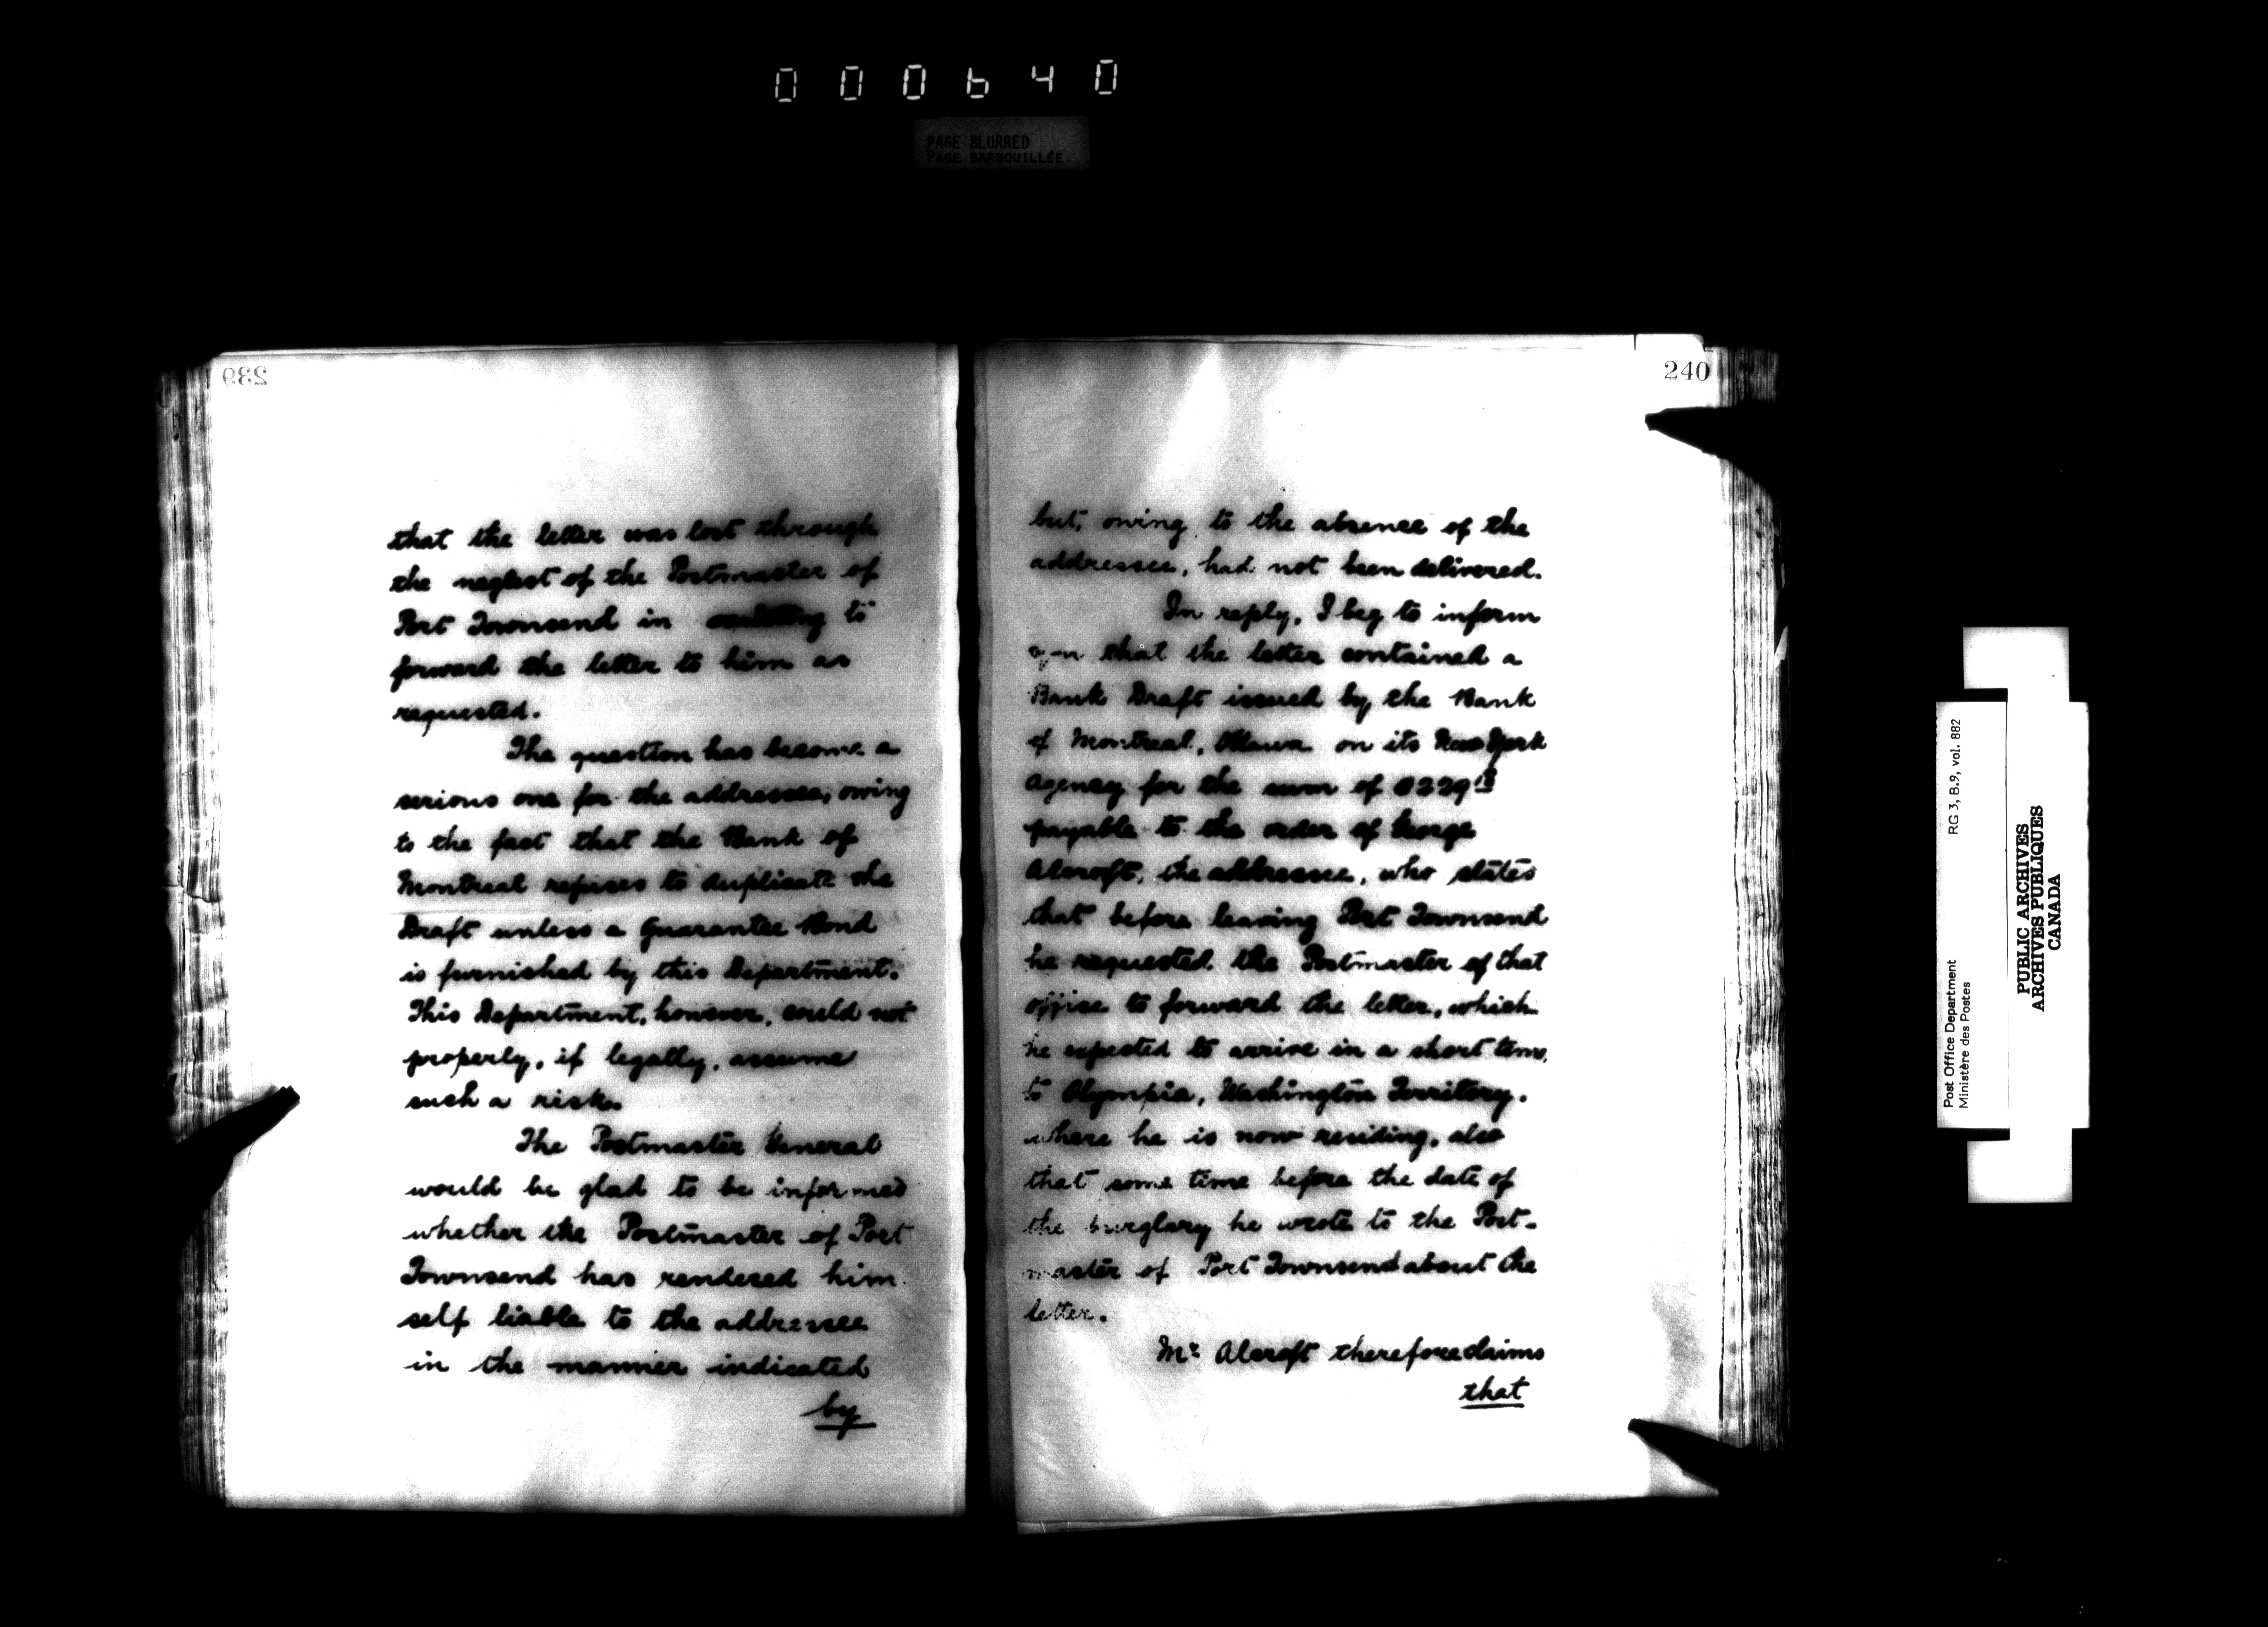 000640
PAGE BLURRED
PAGE BARBOUILLÉE
239
that the letter was lost through
the neglect of the Postmaster of
Port Townsend in omitting to
forward the letter to him as
requested.
The question has become a
serious one for the addressee, owing
to the fact that the Bank of
Montreal refuses to duplicate the
Draft unless a Guarantee Bond
is furnished by this Department.
This Department, however, could not
properly, if legally, assume
such a risk.
The Postmaster General
would be glad to be informed
whether the Postmaster of Port
Townsend has rendered him
self liable to the addressee
in the manner indicated
by
240
but, owing to the absence of the
addressee, had not been delivered.
In reply, I beg to inform
you that the letter contained a
Bank Draft issued by the Bank
of Montreal, Ottawa on its New York
Agency for the sum of
payable to the order of George
Alcroft, the addressee, who states
that before leaving Port Townsend
he requested the Postmaster of that
office to forward the letter, which
he expected to arrive in a short time,
to Olympia, Washington Territory.
where he is now residing, also
that some time before the date of
the burglary he wrote to the Post-
master of Port Townsend about the
letter.
Mr. Alcroft therefore claims
that
Post Office Department RG 3, B.9, vol. 882
Ministère des Postes
PUBLIC ARCHIVES
ARCHIVES PUBLIQUES
CANADA